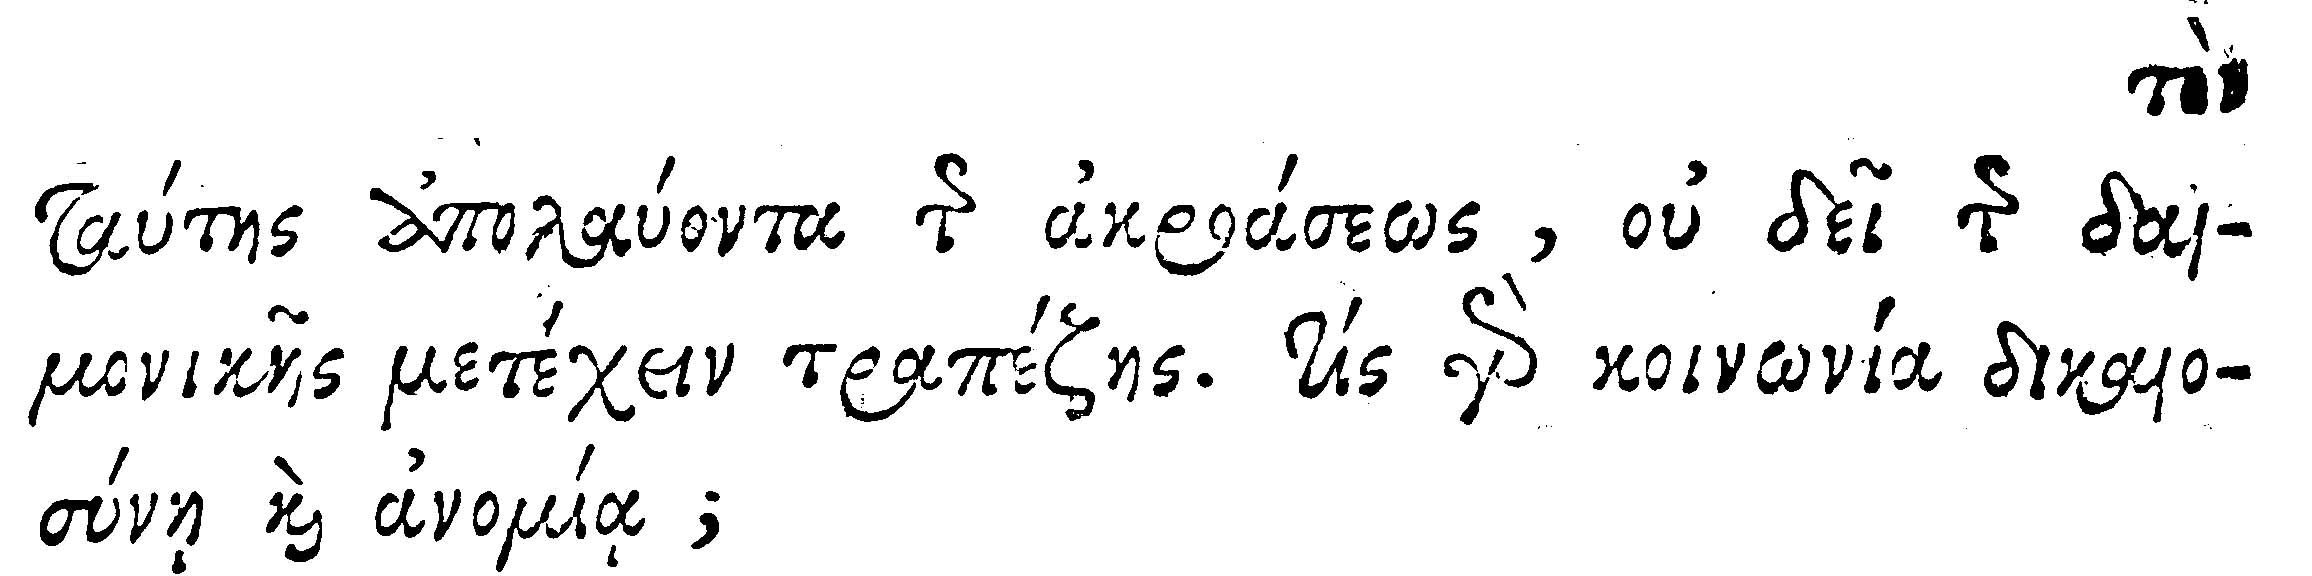 τὸν
ταύτης ἀπολαύοντα τῆς ἀκροάσεως, οὐ δεῖ τῆς δαι-
μονικῆς μετέχειν τραπέζης. Τίς γὰρ κοινωνία δικαιο-
σύνῃ καὶ ἀνομίᾳ;